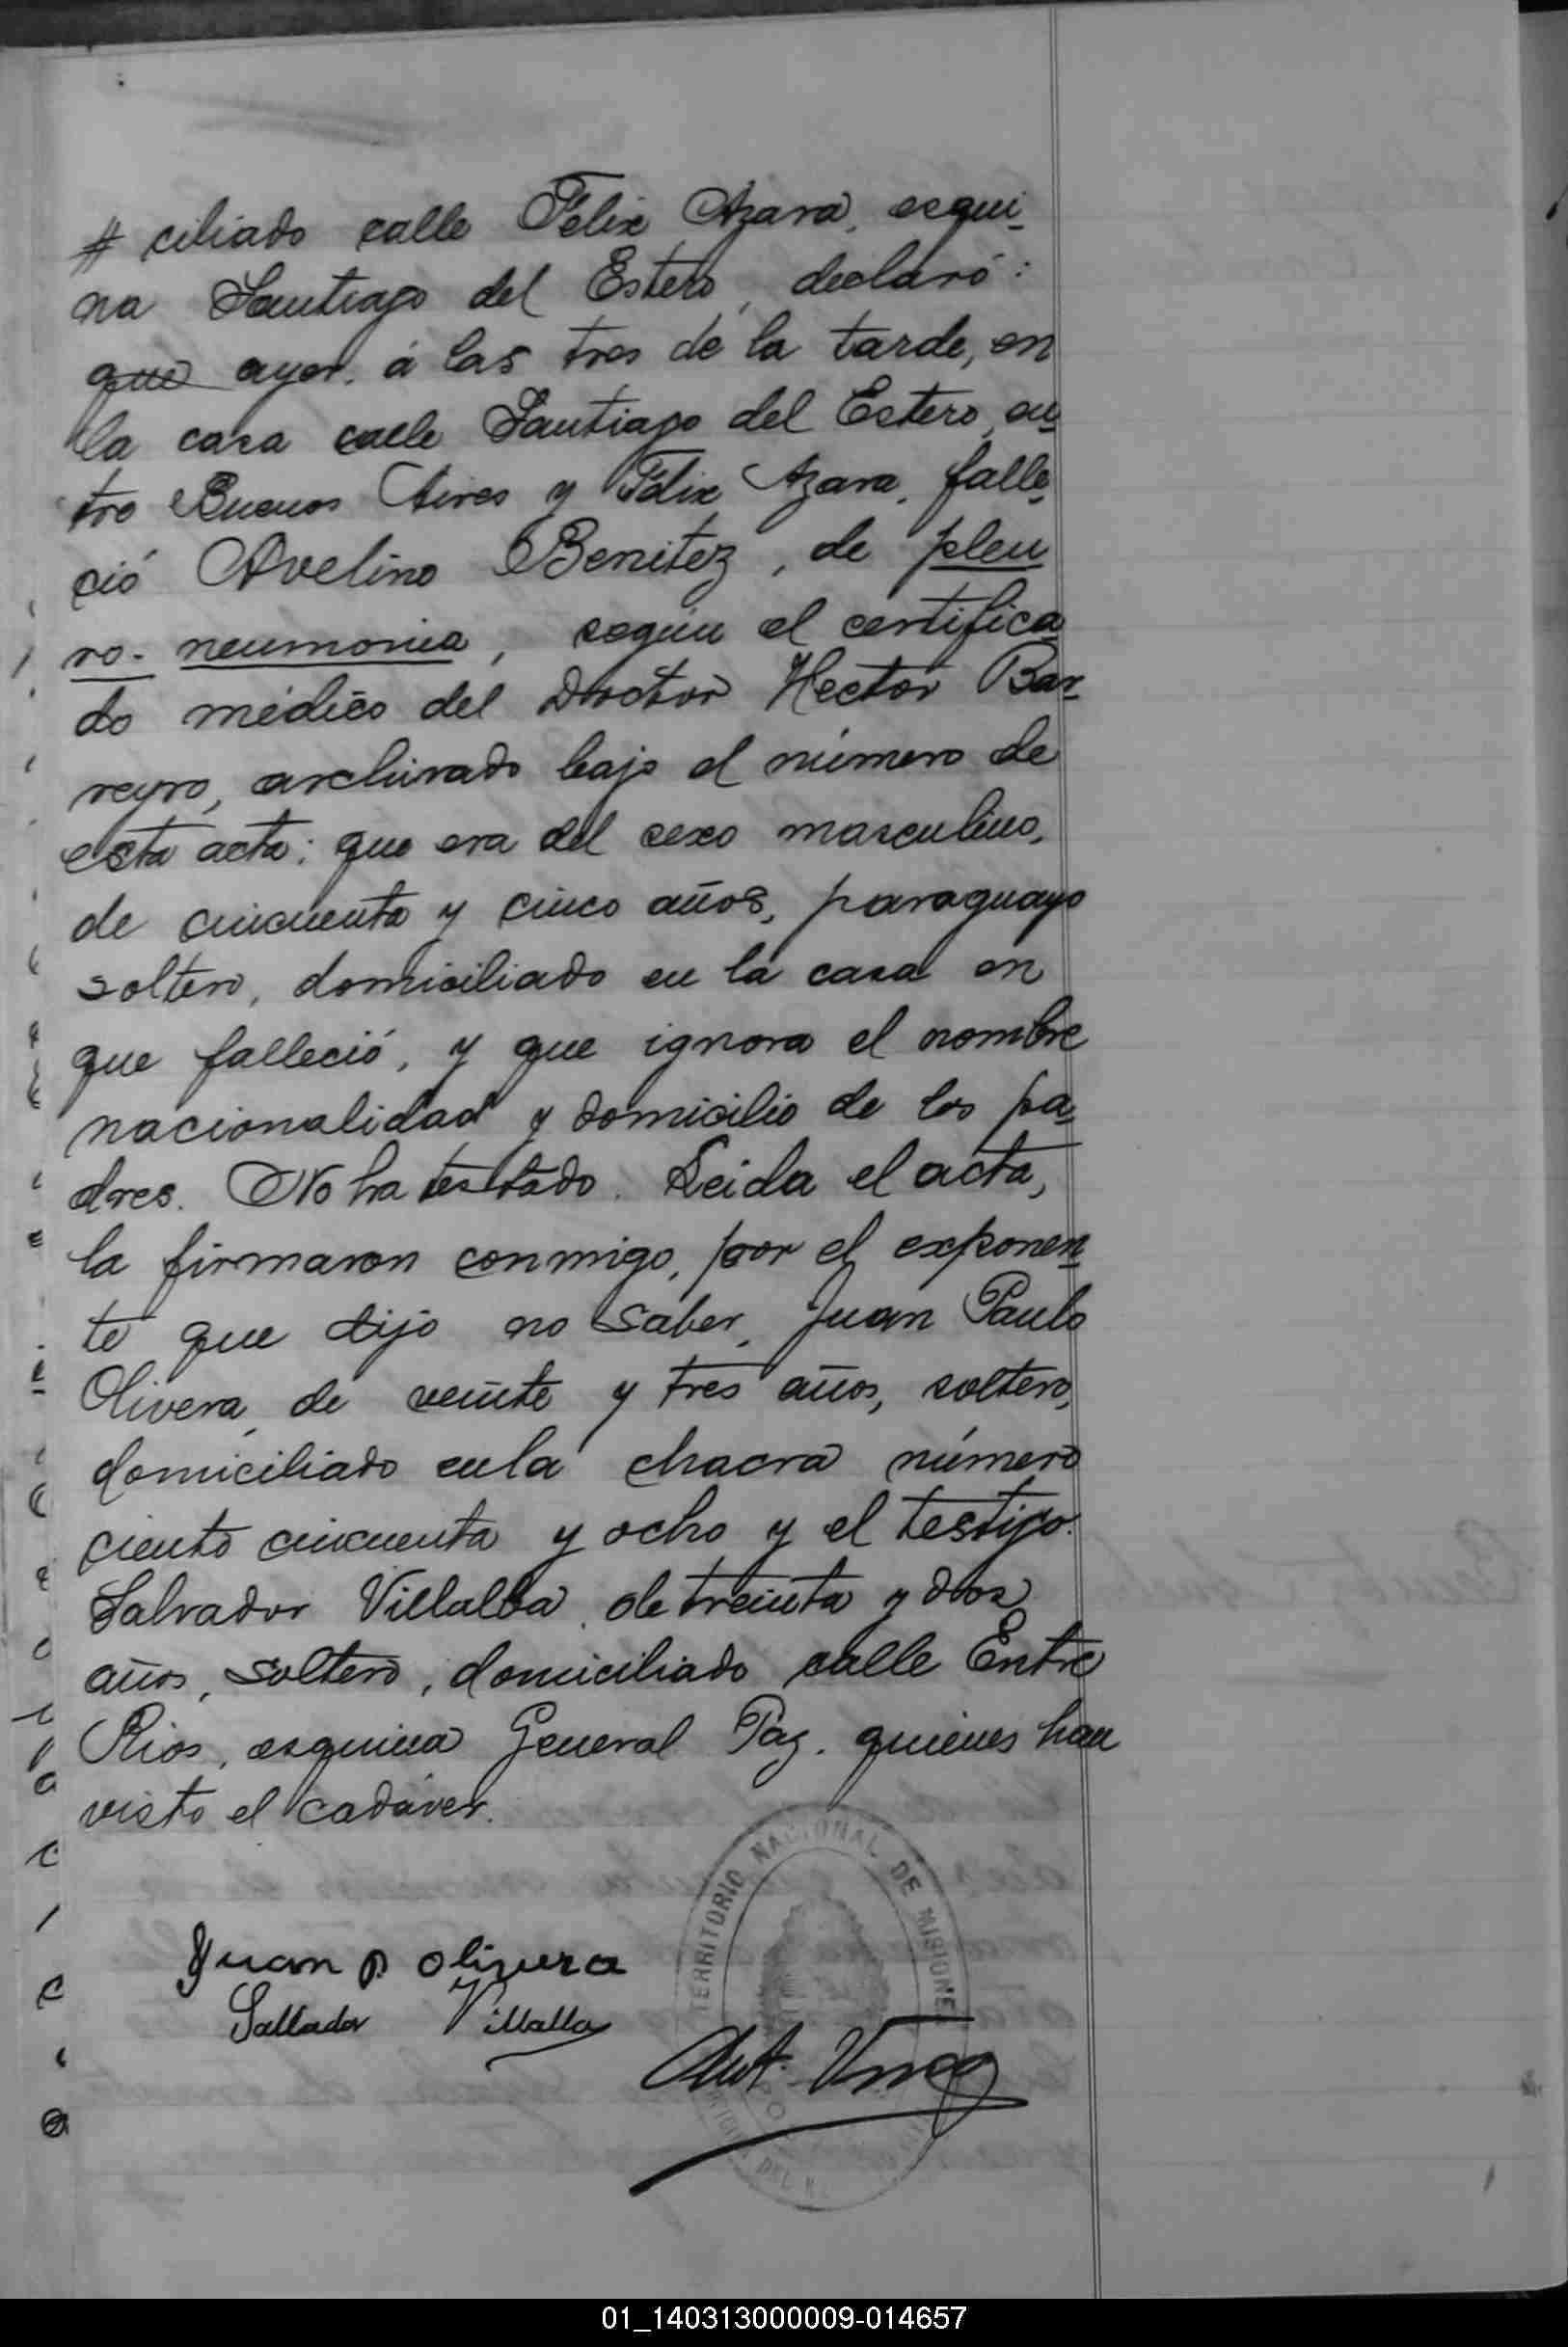 # ciliado calle Félix Azara, esqui-
na Santiago del Estero, declaró:
que ayer, á las tres de la tarde, en
la casa calle Santiago del Estero, en-
tre Buenos Aires y Félix Azara, falle-
ció Avelino Benitez, de pleu
ro- neumonia, según el certifica-
do médico del Doctor Hector Bar-
reyro, archivado bajo el número de
esta acta: que era del sexo masculino,
de cincuenta y cinco años, paraguayo
soltero, domiciliado en la casa en
que falleció, y que ignora el nombre
nacionalidad y domicilio de los pa-
dres. No ha testado. Leida el acta,
la firmaron conmigo, por el exponen-
te que dijo no saber, Juan Paulo
Olivera, de veinte y tres años, soltero,
domiciliado en la chacra número
ciento cincuenta y ocho y el testigo
Salvador Villalba, de treinta y dos
años, soltero, domiciliado calle Entre
Rios, esquina General Paz, quienes han
visto el cadáver.
Juan P Olivera
Sallador Villalla
TERRITORIO NACIONAL DE MISIONES
Ant.
DEL
01_140313000009-014657